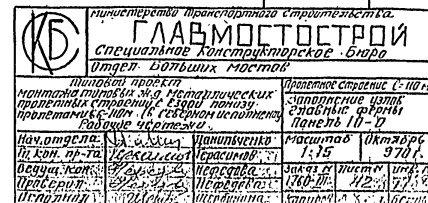 КБ
Министерство транспортного строительства
ГЛАВМОСТОСТРОЙ
Специальное Конструкторское Бюро
Отдел Больших мостов
Типовой проект
монтажа типовых ж.д. металлических
пролетных строений с ездой понизу
пролетами 66-110м. (в северном исполнении)
Рабочие чертежи.
Пролетное строение ℓ=110м
Заполнение узлов
Главные фермы
Панель 10-11
Нач. отдела Данильченко Масштаб Октябрь
Гл. кон. пр-та Герасимов 1:15 970г.
Ведущ. кон. Нефедова Заказ № Лист №
Проверил Нефедова 42
Исполнил